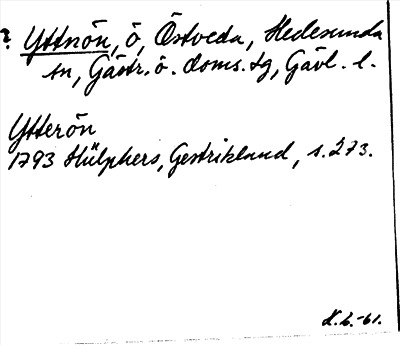 ? Yttnön, ö, Östveda, Hedesunda
sn, Gästr. ö. doms. tg, Gävl. l.
Ytterön
1793 Hülphers, Gestrikland, s. 273.
K.L.-61.